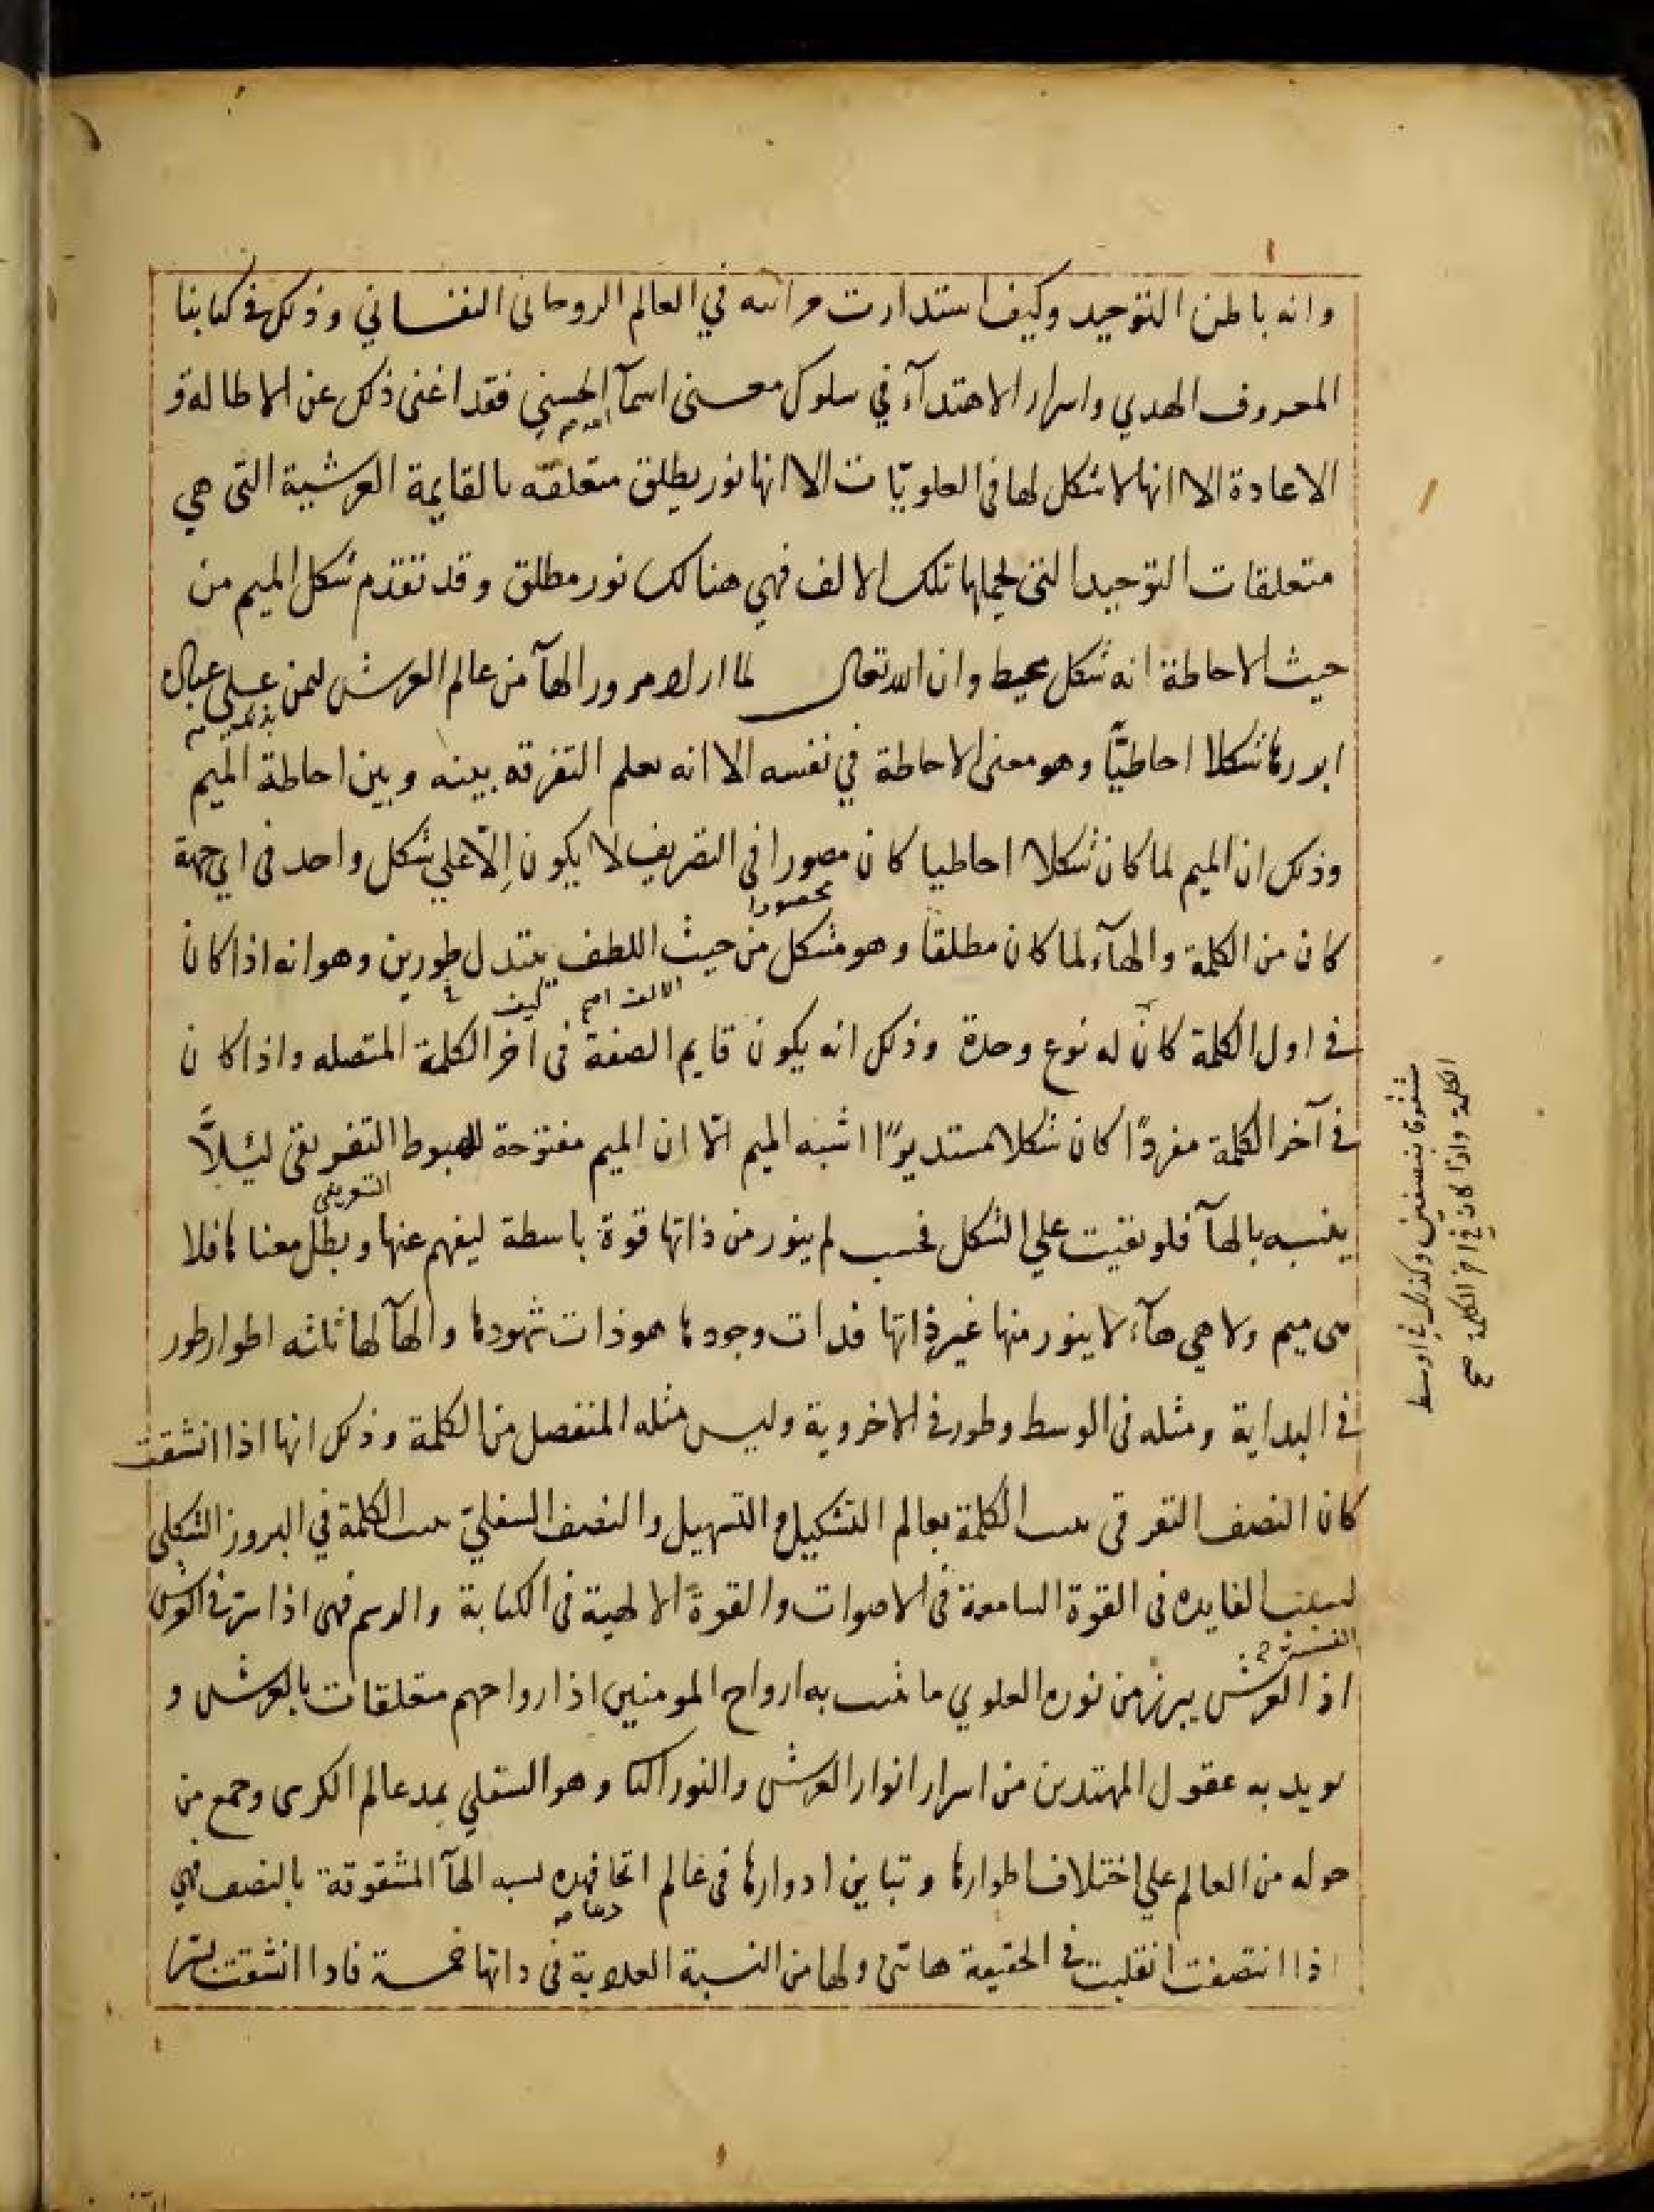 وانه باطن التوحيد وكيف استدارت مراتبه في العالم الروحانى النفساني وذلك في كتابنا
المعروف الهدي واسرار الاهتدآء في سلوك معنى اسمآ الحسني فقد اغنى ذلك عن الاطالة و
الاعادة الا انها لا شكل لها فى العلويّات الا انها نور يطلق متعلقه بالقايمة العرشية التى هي
متعلقات التوحيد التى تلك الالف فهي هنالك نور مطلق وقد تقدم شكل الميم من
حيث الاحاطة انه شكل محيط وان الله تعالى لما اراد مرور الهآ من عالم العرش ليمن على عباده
ابرزها شكلا احاطيّا وهو معنى الاحاطة في نفسه الا انه يعلم التفرقه بينه وبين احاطة الميم
وذلك ان الميم لما كان شكلا احاطيا كان مصورا فى التصريف لا يكون إلّا علي شكل واحد فى اي جهة
محصورا
كان من الكلمة والهآء لما كان مطلقا وهو مشكل من حيث اللطف يتبدل طورين وهو انه اذا كان
فى اول الكلمة كان له نوع وحدة وذلك انه يكون قايم الصفة فى آخر الكلمة المتصله واذا كان
فى آخر الكلمة مفردًا كان شكلا مستديرًا اشبه الميم انما ان الميم مفتوحة للهبوط التفريقى لئلاَّ
التعريفى
يشبه بالهآ فلو بقيت علي الشكل فحسب لم ينور من ذاتها قوة باسطة ليفهم عنها وبطل معناها فلا
هى ميم ولا هي هآء لا ينور منها غير ذاتها فذات وجودها هو ذات شهودها والهآ لها ثلثه اطوار طور
فى البداية ومثله فى الوسط وطور فى الاخروية وليس مثله المنفصل من الكلمة وذلك انها اذا انشقت
كان النصف الكلمة بعالم التشكيل والتسهيل والنصف السفليّ الكلمة في البروز الشكلى
الفايده فى القوة السامعة فى الاصوات والقوة الالهية فى الكتابة والرسم فهى اذا فى العرش
اذ العرش يبرز من نوره العلوي ما به ارواح المومنين اذ ارواحهم متعلقات بالعرش و
يويد به عقول المهتدين من اسرار انوار العرش والنور وهو السفلي يمد عالم الكرسى وجمع من
حوله من العالم علي اختلاف اطوارها وتباين ادوارها فى عالم فهذه نسبه الهآ المشقوقة بالنصف فهي
اذا انتصفت انقلبت فى الحقيقة هاتين ولها من النسبة فى ذاتها خمسة فاذا انشقت
مشقوقا بنصفين وكذلك فى اوسط
الكلمة واذا كان فى اخر الكلمة صح